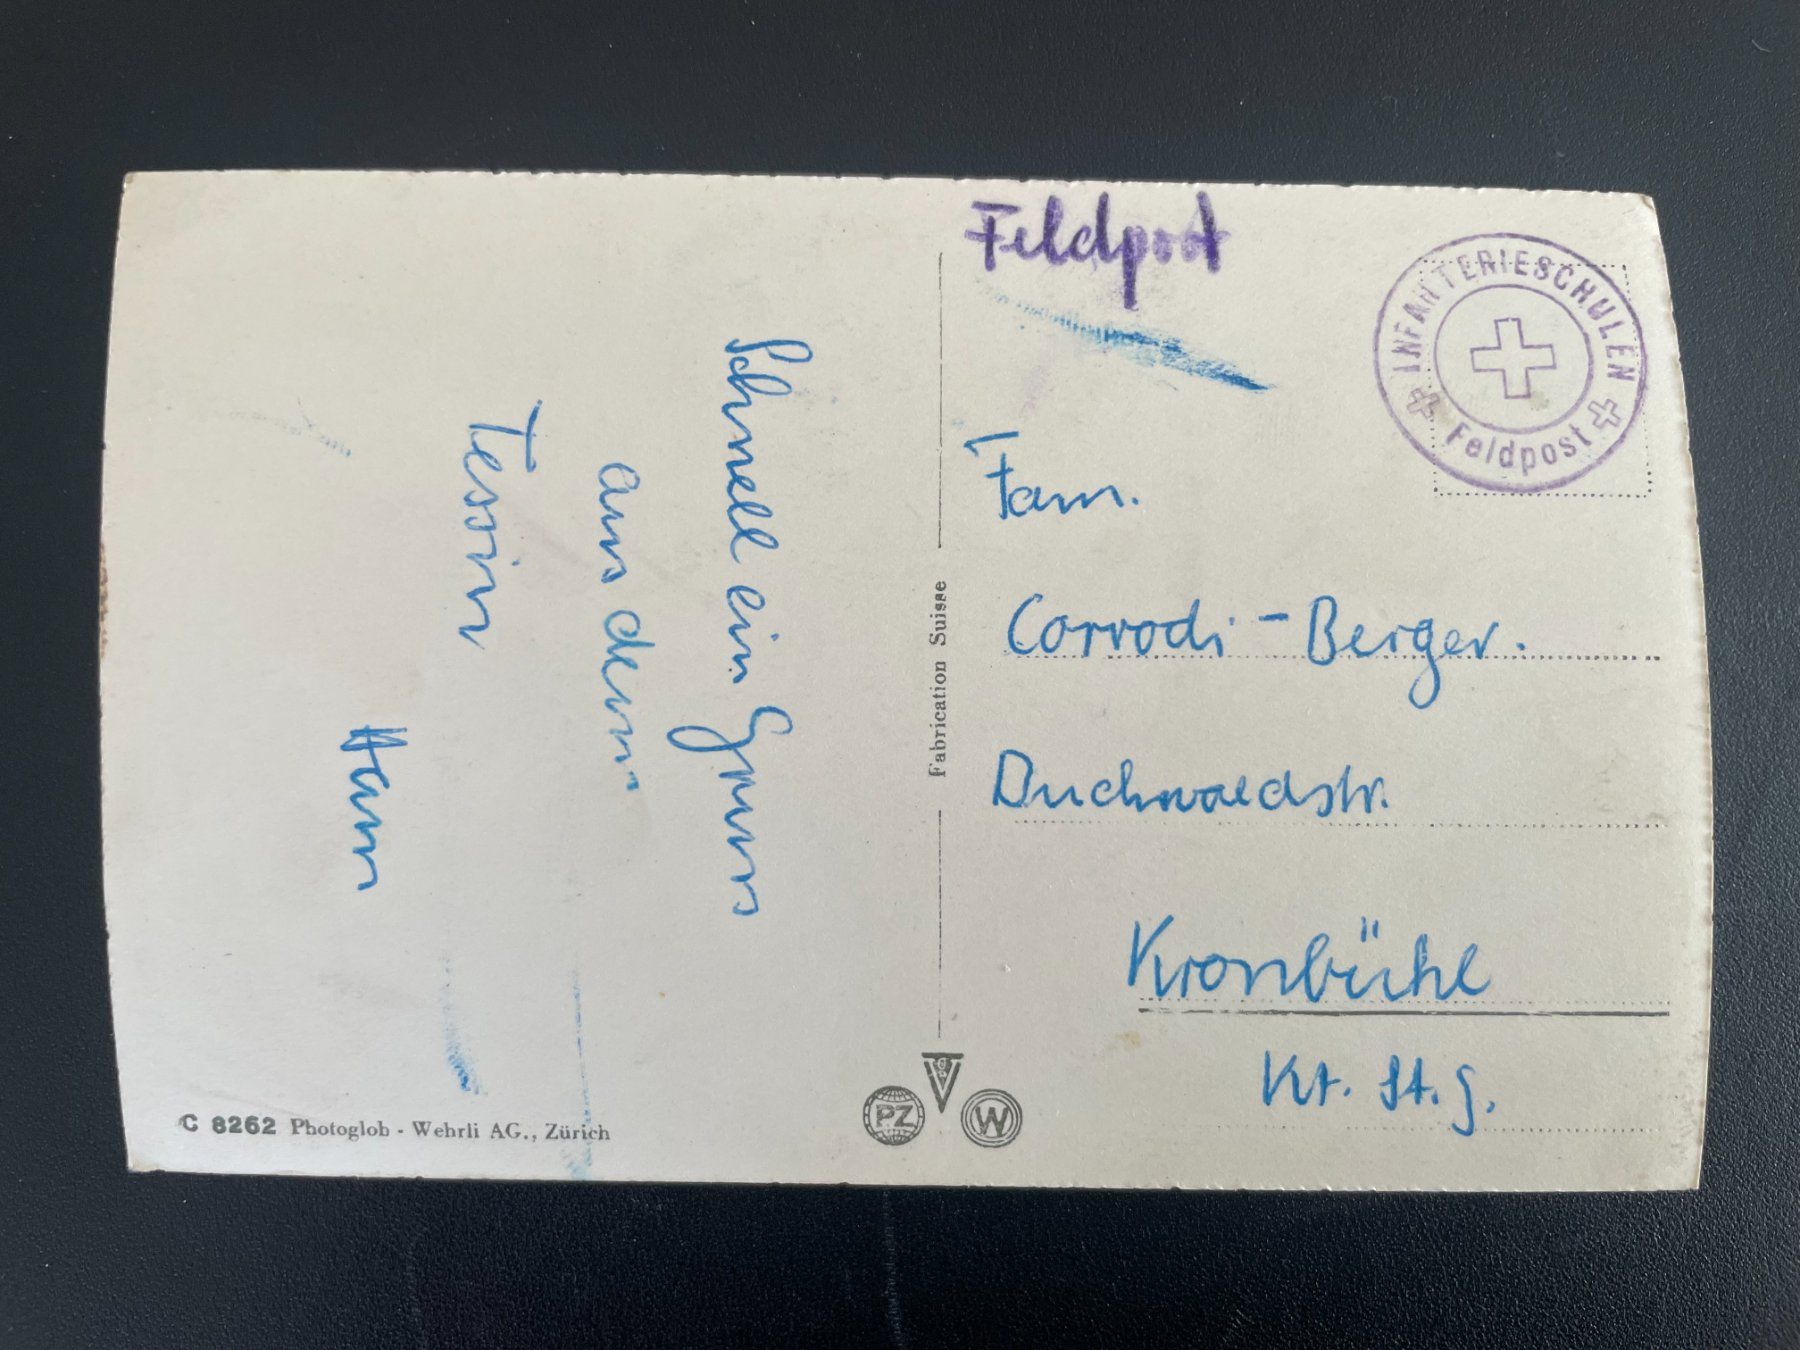 Schnell ein Gruss
aus dem
Tessin
Hans
C 8262 Photoglob - Wehrli AG., Zürich
Fabrication Suisse
PZ
W
Feldpost
INFANTERIESCHULEN
Feldpost
Fam.
Corrodi - Berger.
Buchwaldstr.
Kronbühl
Kt. St. G.